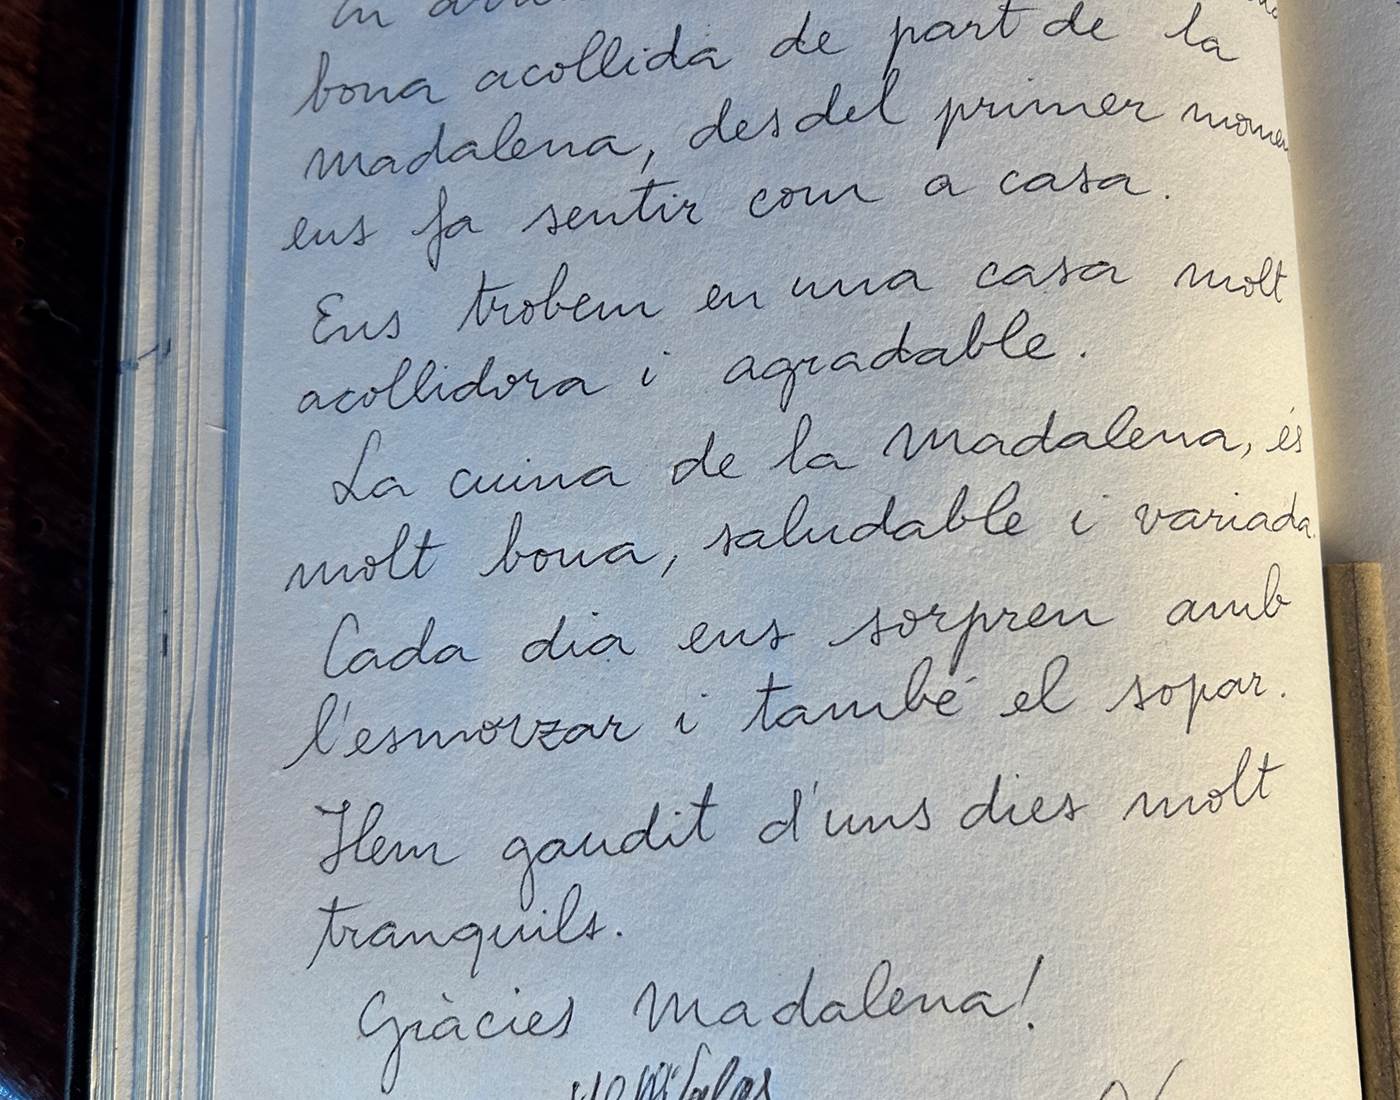 bona acollida de part de la
Madalena, des del primer momen
ens fa sentir com a casa.
Ens trobem en una casa molt
acollidora i agradable.
La cuina de la Madalena, és
molt bona, saludable i variada.
Cada dia ens sorpren amb
l'esmorzar i també el sopar.
Hem gaudit d'uns dies molt
tranquils.
Gràcies Madalena!